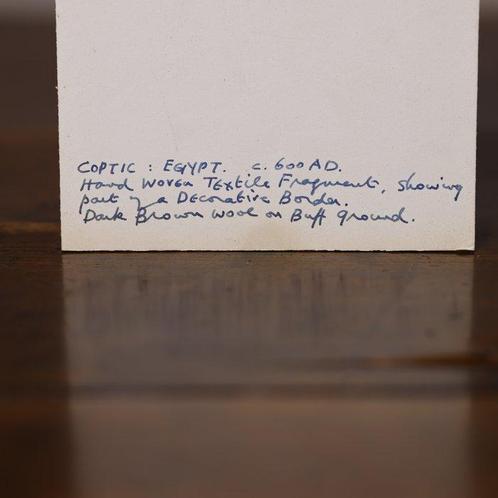 COPTIC : EGYPT. c. 600 AD.
Hand Woven Textile Fragment, showing
part of a Decorative Border.
Dark Brown Wool on Buff ground.